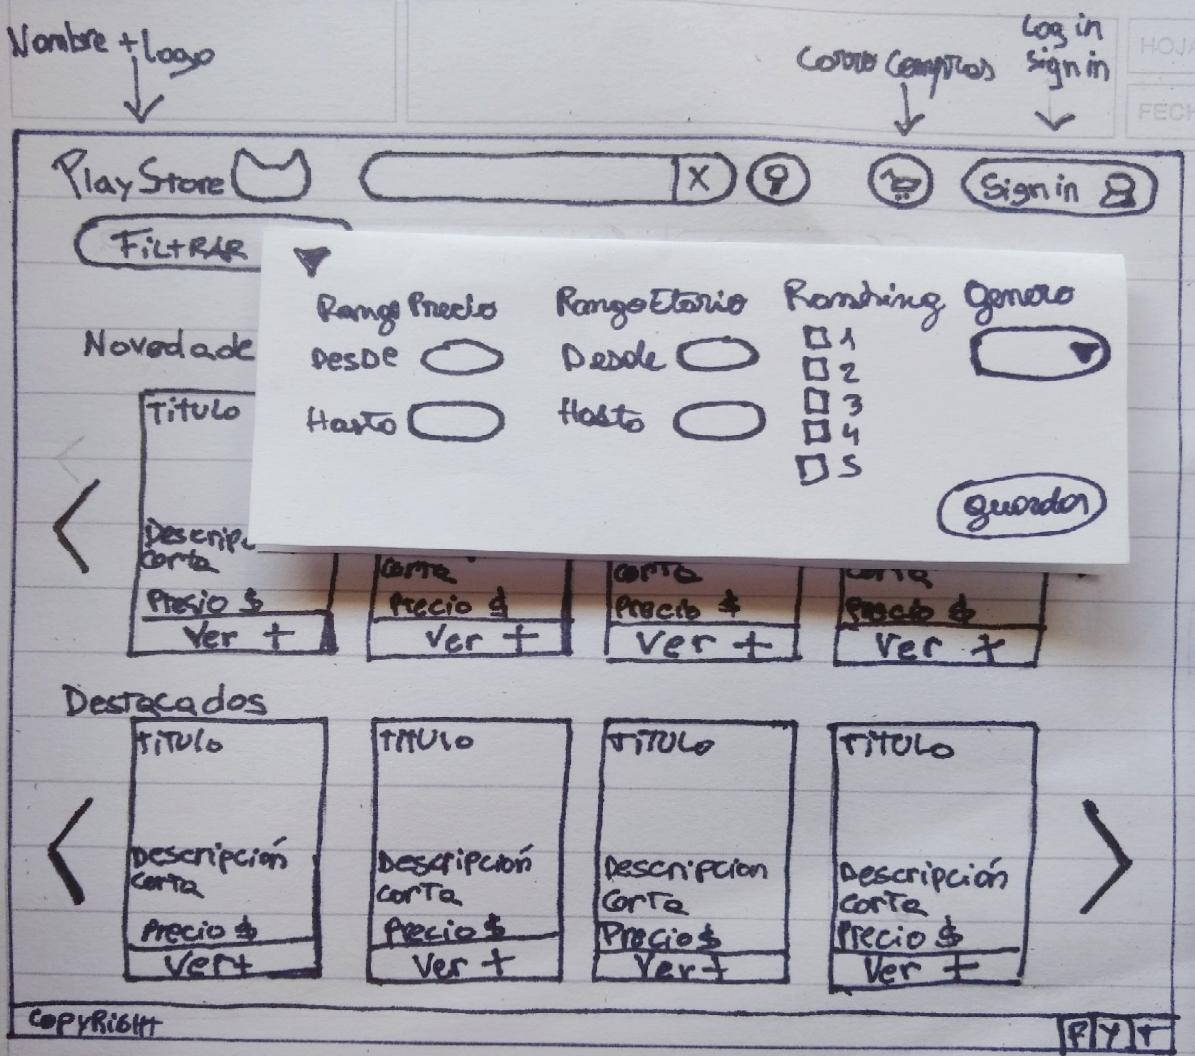 Nombre + Logo
Carro Compras
Log in
Sign in
HOJA
FECH
PlayStore
X
Sign in
FiLtRAR
Rango Precio
Rango Etario
Ranking
Genero
DesDe
Desde
1
2
3
4
5
Hasta
Hasta
guardar
Novedade
TiTULo
Descripc
corta
Presio $
Ver +
corta
Precio $
Ver +
corta
Precio $
Ver +
corta
Precio $
Ver +
Destacados
TiTULo
Descripción
corta
Precio $
Ver+
TiTULo
Descripción
corta
Precio $
Ver +
TiTULo
Descripcion
corta
Precio $
Ver+
TiTULo
Descripción
corta
Precio $
Ver +
copyRiGHt
F Y T